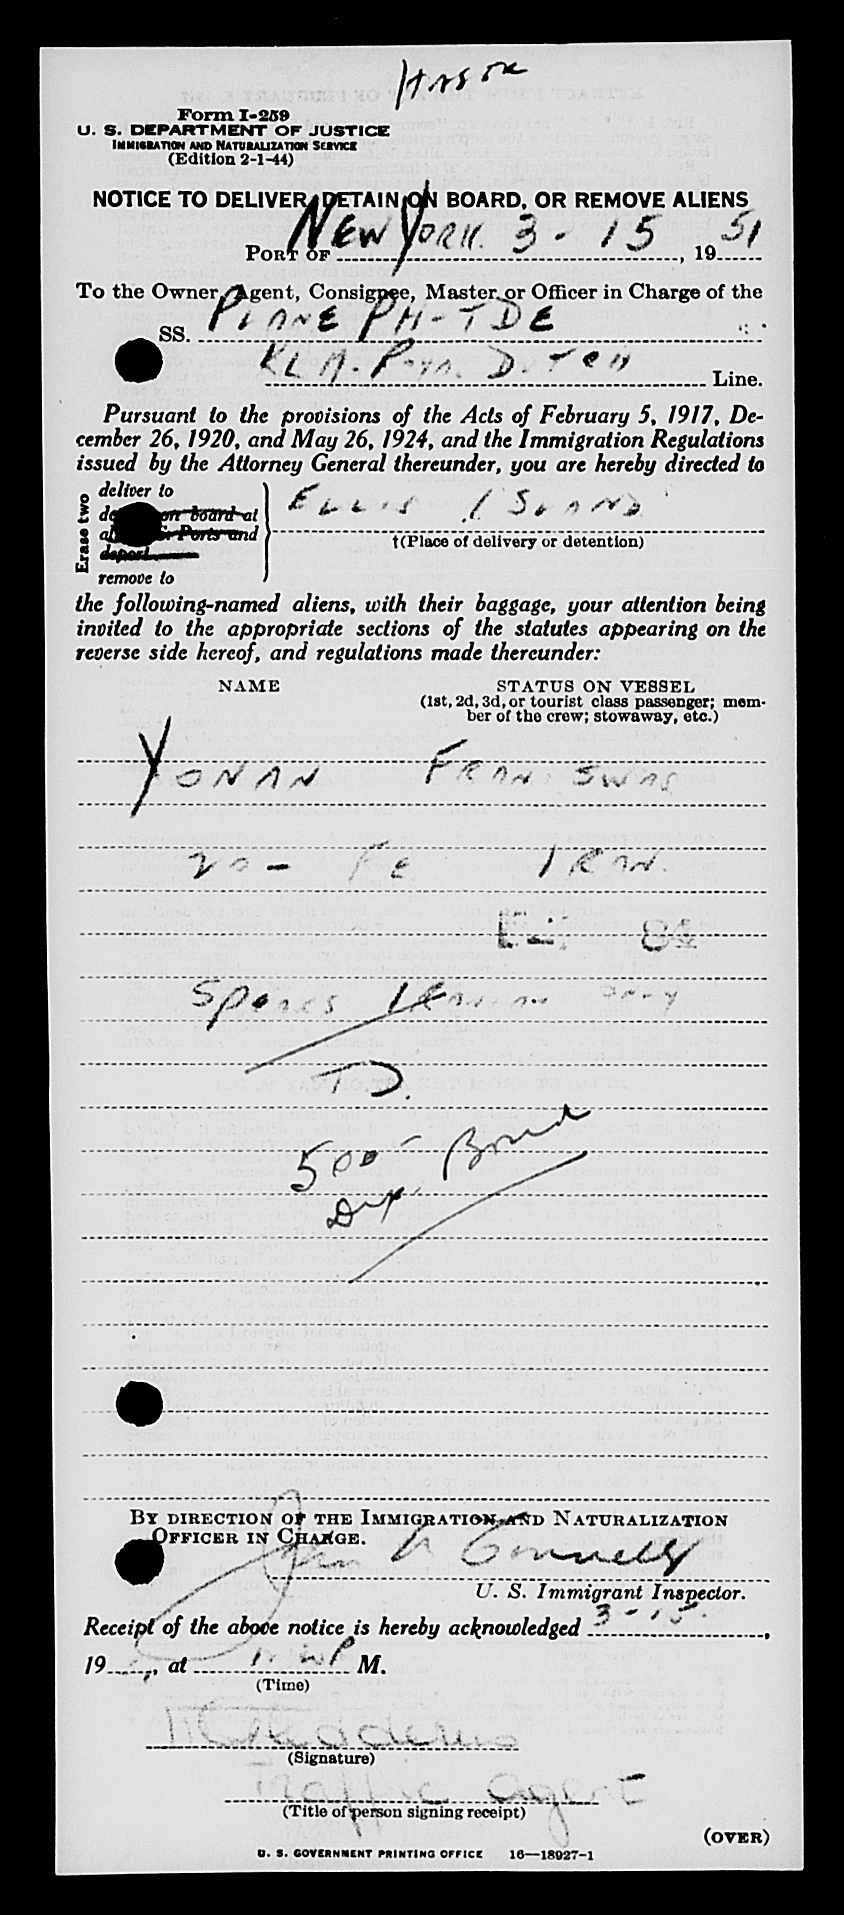 Form I-259
U. S. DEPARTMENT OF JUSTICE
IMMIGRATION AND NATURALIZATION SERVICE
(Edition 2-1-44)
NOTICE TO DELIVER, DETAIN ON BOARD, OR REMOVE ALIENS
PORT OF NEW YORK. 3-15, 1951
To the Owner, Agent, Consignee, Master, or Officer in Charge of the
SS. PLANE PH-TDE
KLM. Royal Dutch Line.
Pursuant to the provisions of the Acts of February 5, 1917, De-
cember 26, 1920, and May 26, 1924, and the Immigration Regulations
issued by the Attorney General thereunder, you are hereby directed to
Erase two
deliver to
on board at
Ports and
deport
remove to
ELLIS ISLAND
†(Place of delivery or detention)
the following-named aliens, with their baggage, your attention being
invited to the appropriate sections of the statutes appearing on the
reverse side hereof, and regulations made thereunder:
NAME STATUS ON VESSEL
(1st, 2d, 3d, or tourist class passenger; mem-
ber of the crew; stowaway, etc.)
YONAN FRANSWAS
20 - Fe IRAN.
Speaks Iranian only
T D.
500- Bond
Dep.
BY DIRECTION OF THE IMMIGRATION AND NATURALIZATION
OFFICER IN CHARGE.
U. S. Immigrant Inspector.
Receipt of the above notice is hereby acknowledged 3-15.,
19, at P M.
(Time)
(Signature)
Traffic Agent
(Title of person signing receipt)
(OVER)
U. S. GOVERNMENT PRINTING OFFICE 16—18927-1